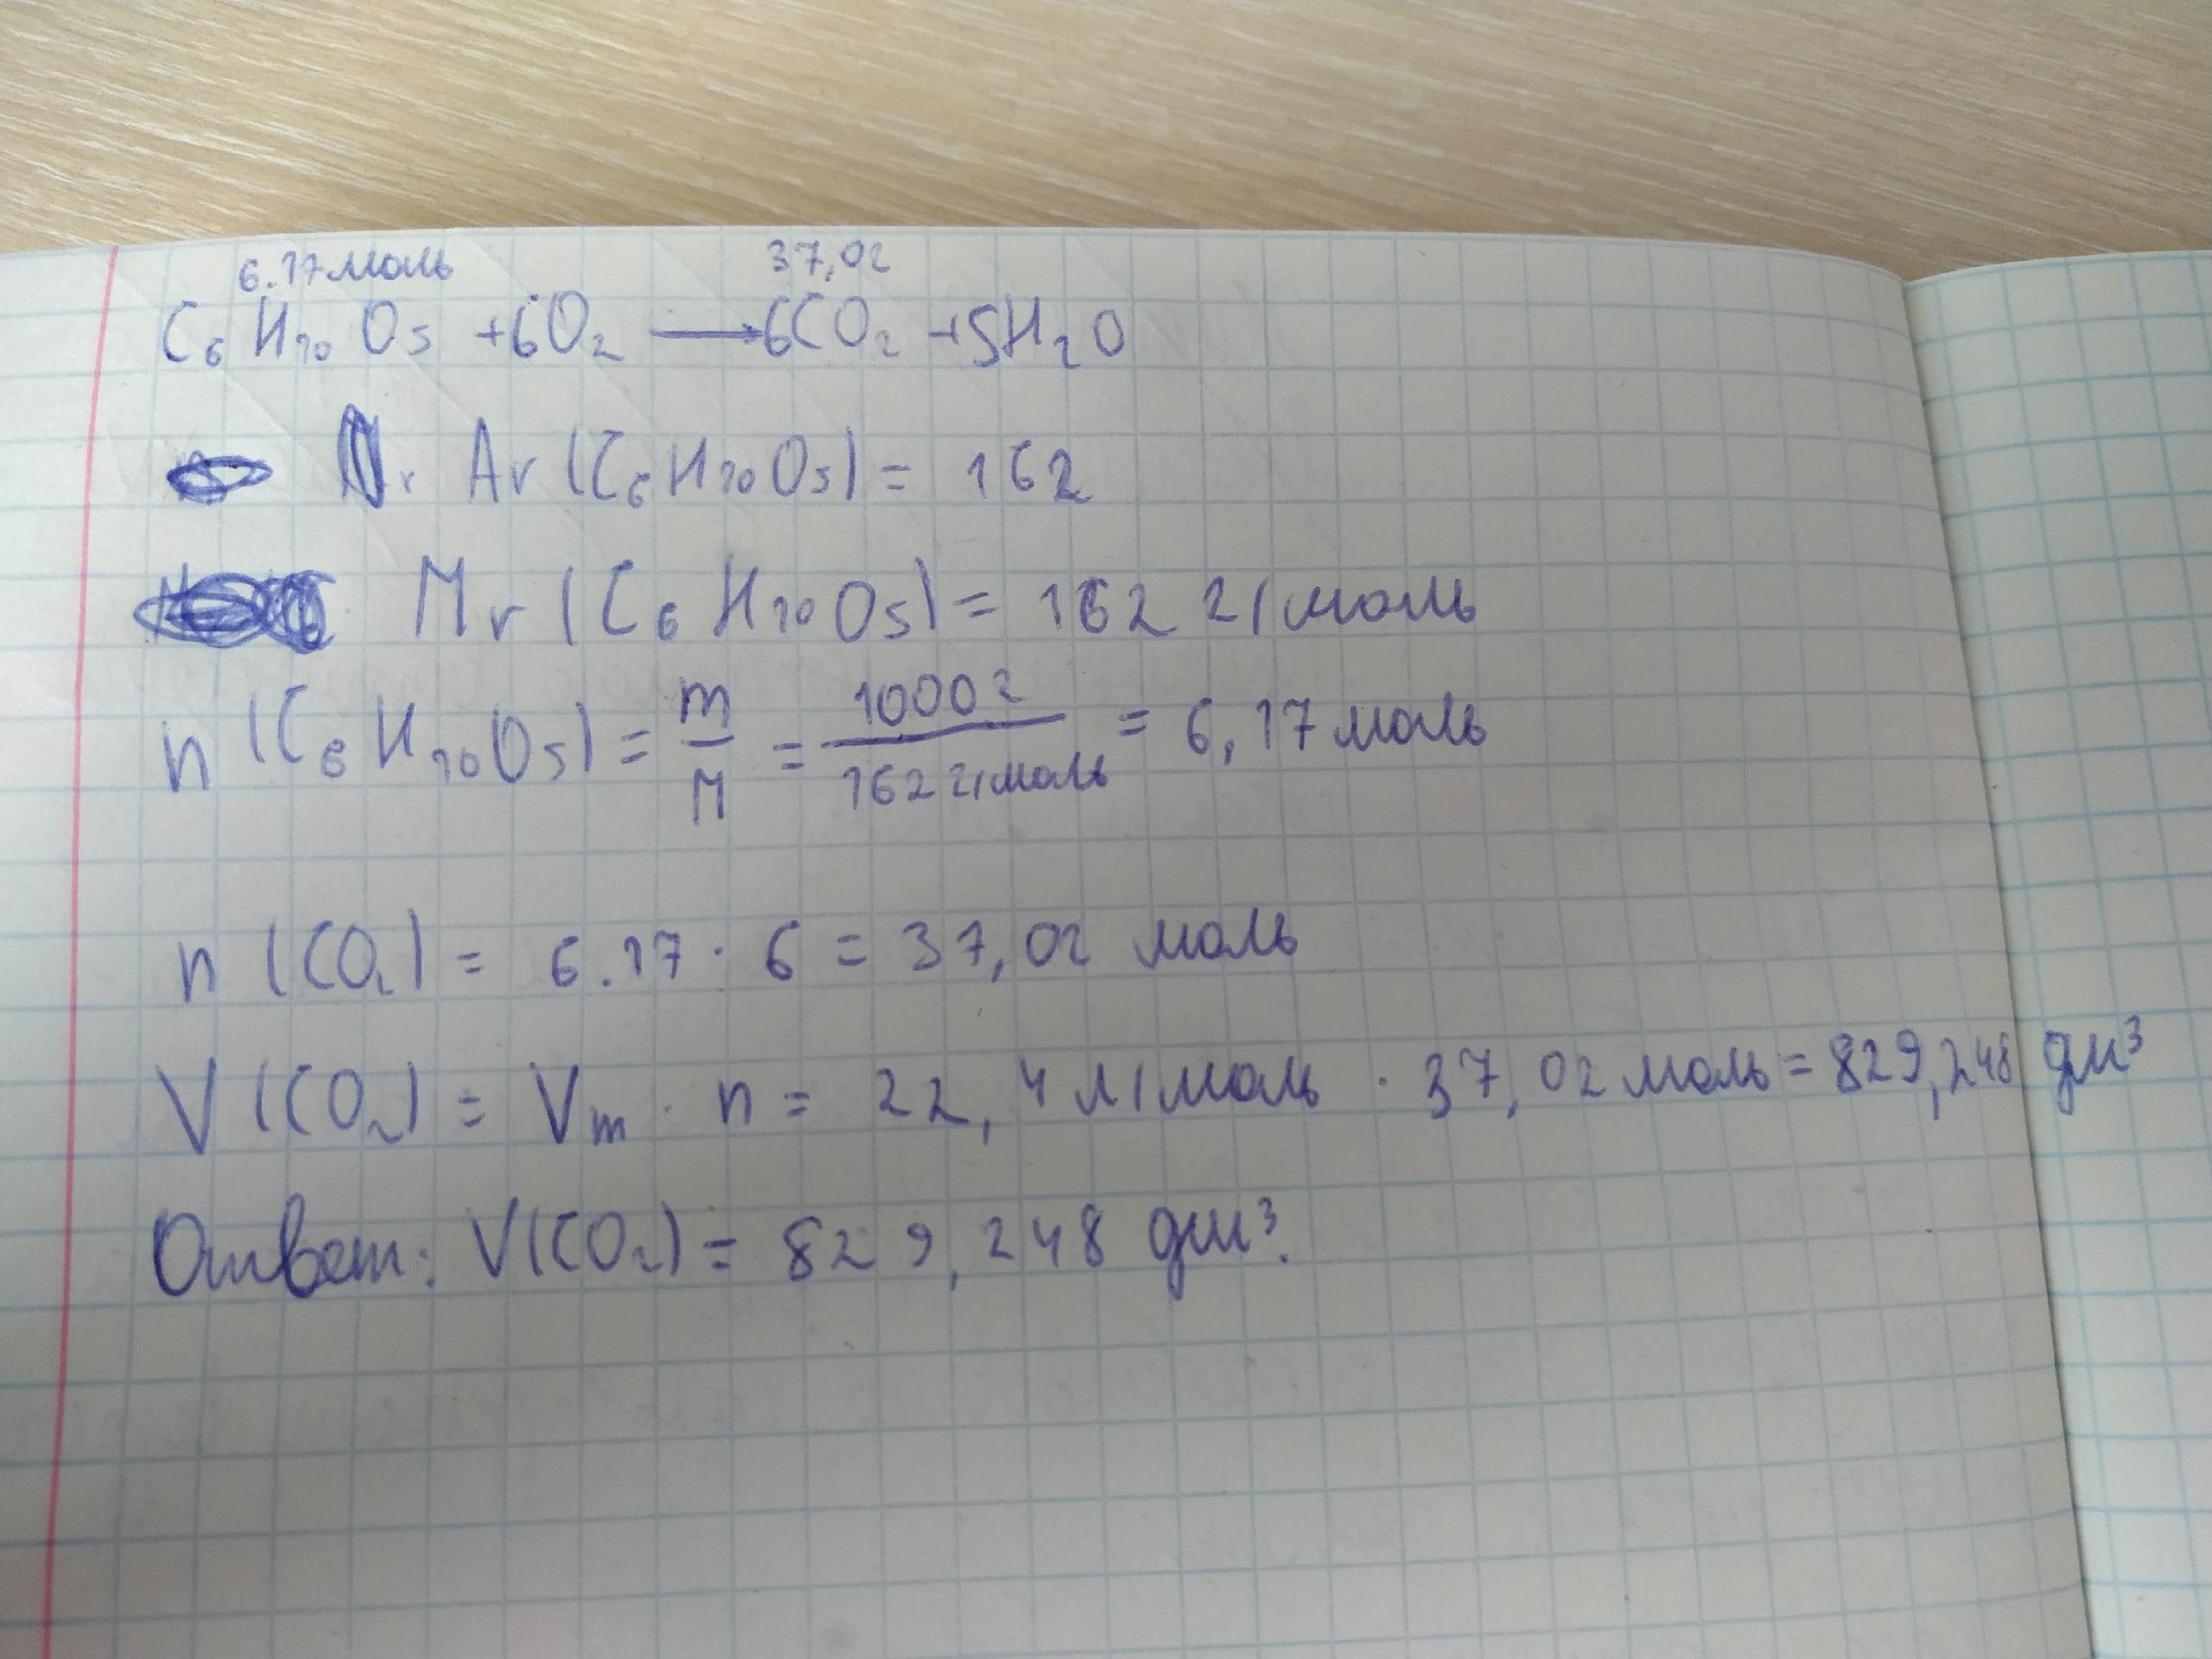 6.17моль 37,02
C₆H₁₀O₅ +6O₂ ⟶6CO₂ +5H₂O
Ar (C₆H₁₀O₅) = 162
Mr (C₆H₁₀O₅) = 162 г/моль
n (C₆H₁₀O₅) = m/M = 1000г/162г/моль = 6,17моль
n (CO₂) = 6.17 · 6 = 37,02 моль
V (CO₂) = Vm · n = 22,4 л/моль · 37,02моль = 829,248 дм³
Ответ: V(CO₂) = 829,248 дм³.